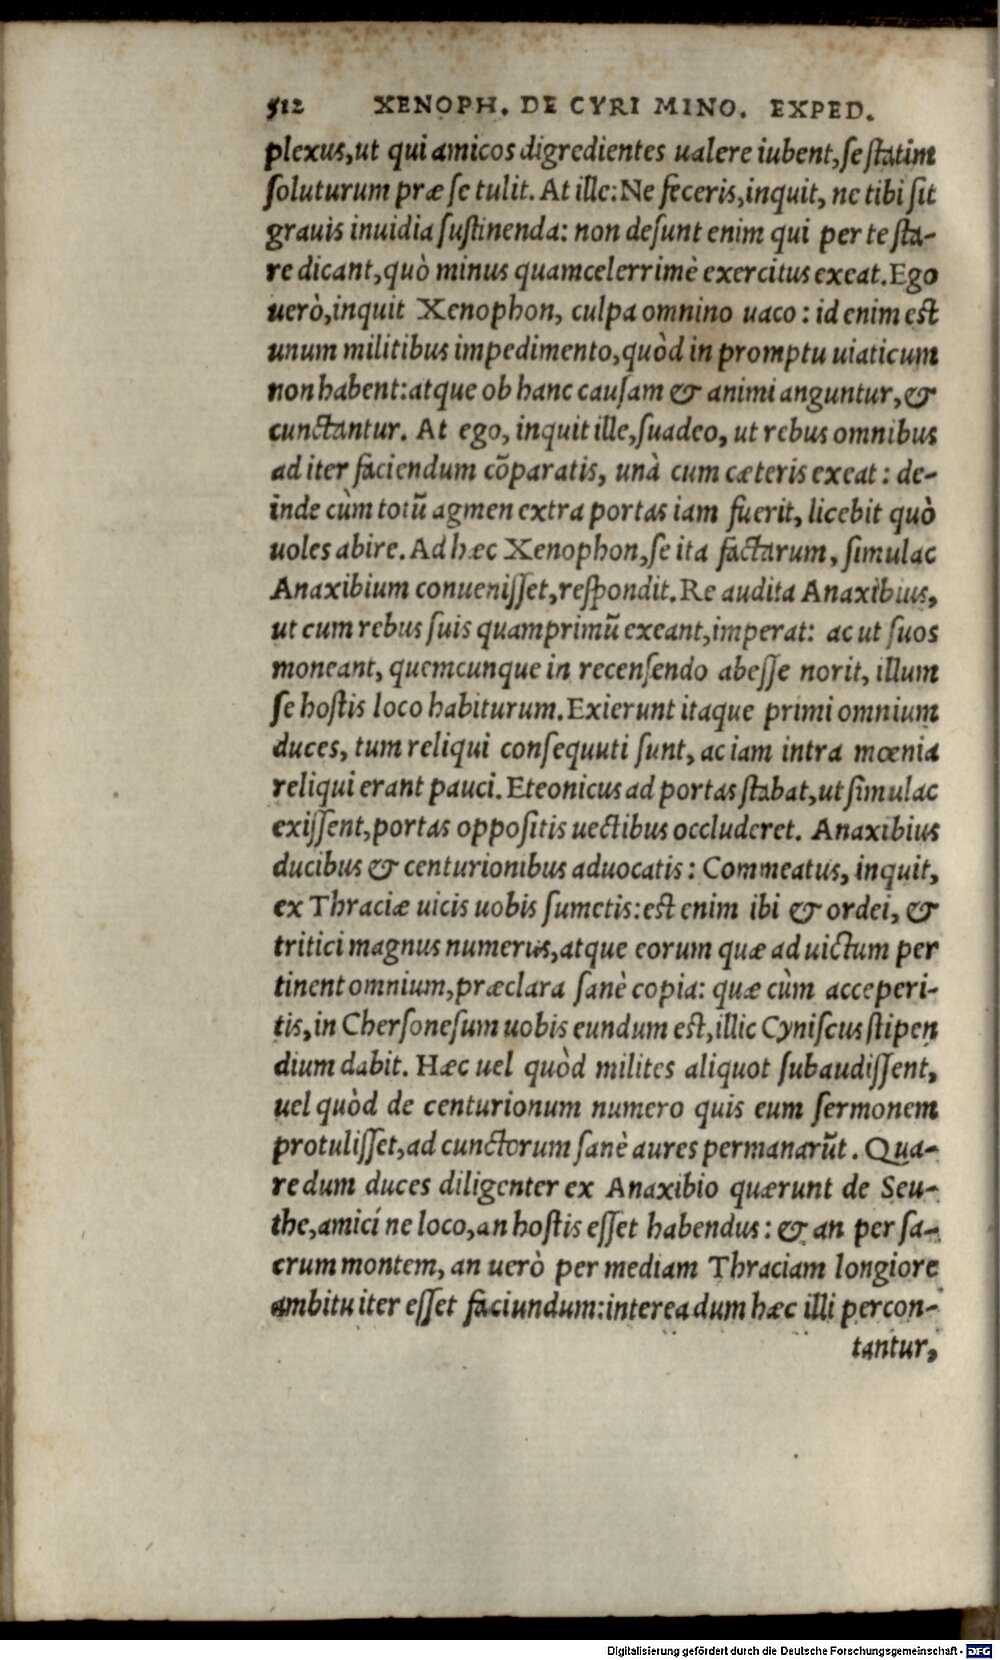 512 XENOPH. DE CYRI MINO. EXPED.
plexus,ut qui amicos digredientes ualere iubent,ſe ſtatim
ſoluturum præ ſe tulit. At ille: Ne feceris,inquit, ne tibi ſit
grauis inuidia ſuſtinenda: non deſunt enim qui per te ſta-
re dicant,quò minus quamcelerrimè exercitus exeat. Ego
uerò,inquit Xenophon, culpa omnino uaco : id enim eſt
unum militibus impedimento,quòd in promptu uiaticum
non habent:atque ob hanc cauſam & animi anguntur,&
cunctantur. At ego, inquit ille,ſuadeo, ut rebus omnibus
ad iter faciendum cōparatis, unà cum cæteris exeat : de-
inde cùm totũ agmen extra portas iam fuerit, licebit quò
uoles abire. Ad hæc Xenophon,ſe ita facturum, ſimulac
Anaxibium conueniſſet,reſpondit. Re audita Anaxibius,
ut cum rebus ſuis quamprimũ exeant,imperat: ac ut ſuos
moneant, quemcunque in recenſendo abeſſe norit, illum
ſe hoſtis loco habiturum. Exierunt itaque primi omnium
duces, tum reliqui conſequuti ſunt, ac iam intra mœnia
reliqui erant pauci. Eteonicus ad portas ſtabat,ut ſimulac
exiſſent,portas oppoſitis uectibus occluderet. Anaxibius
ducibus & centurionibus aduocatis : Commeatus, inquit,
ex Thraciæ uicis uobis ſumetis:eſt enim ibi & ordei, &
tritici magnus numerus,atque eorum quæ ad uictum per
tinent omnium,præclara ſanè copia: quæ cùm acceperi-
tis,in Cherſoneſum uobis eundum eſt,illic Cyniſcus ſtipen
dium dabit. Hæc uel quòd milites aliquot ſubaudiſſent,
uel quòd de centurionum numero quis eum ſermonem
protuliſſet,ad cunctorum ſanè aures permanarũt. Qua-
re dum duces diligenter ex Anaxibio quærunt de Seu-
the,amicí ne loco,an hoſtis eſſet habendus : & an per ſa-
crum montem, an uerò per mediam Thraciam longiore
ambitu iter eſſet faciundum:interea dum hæc illi percon-
tantur,
Digitalisierung gefördert durch die Deutsche Forschungsgemeinschaft - DFG